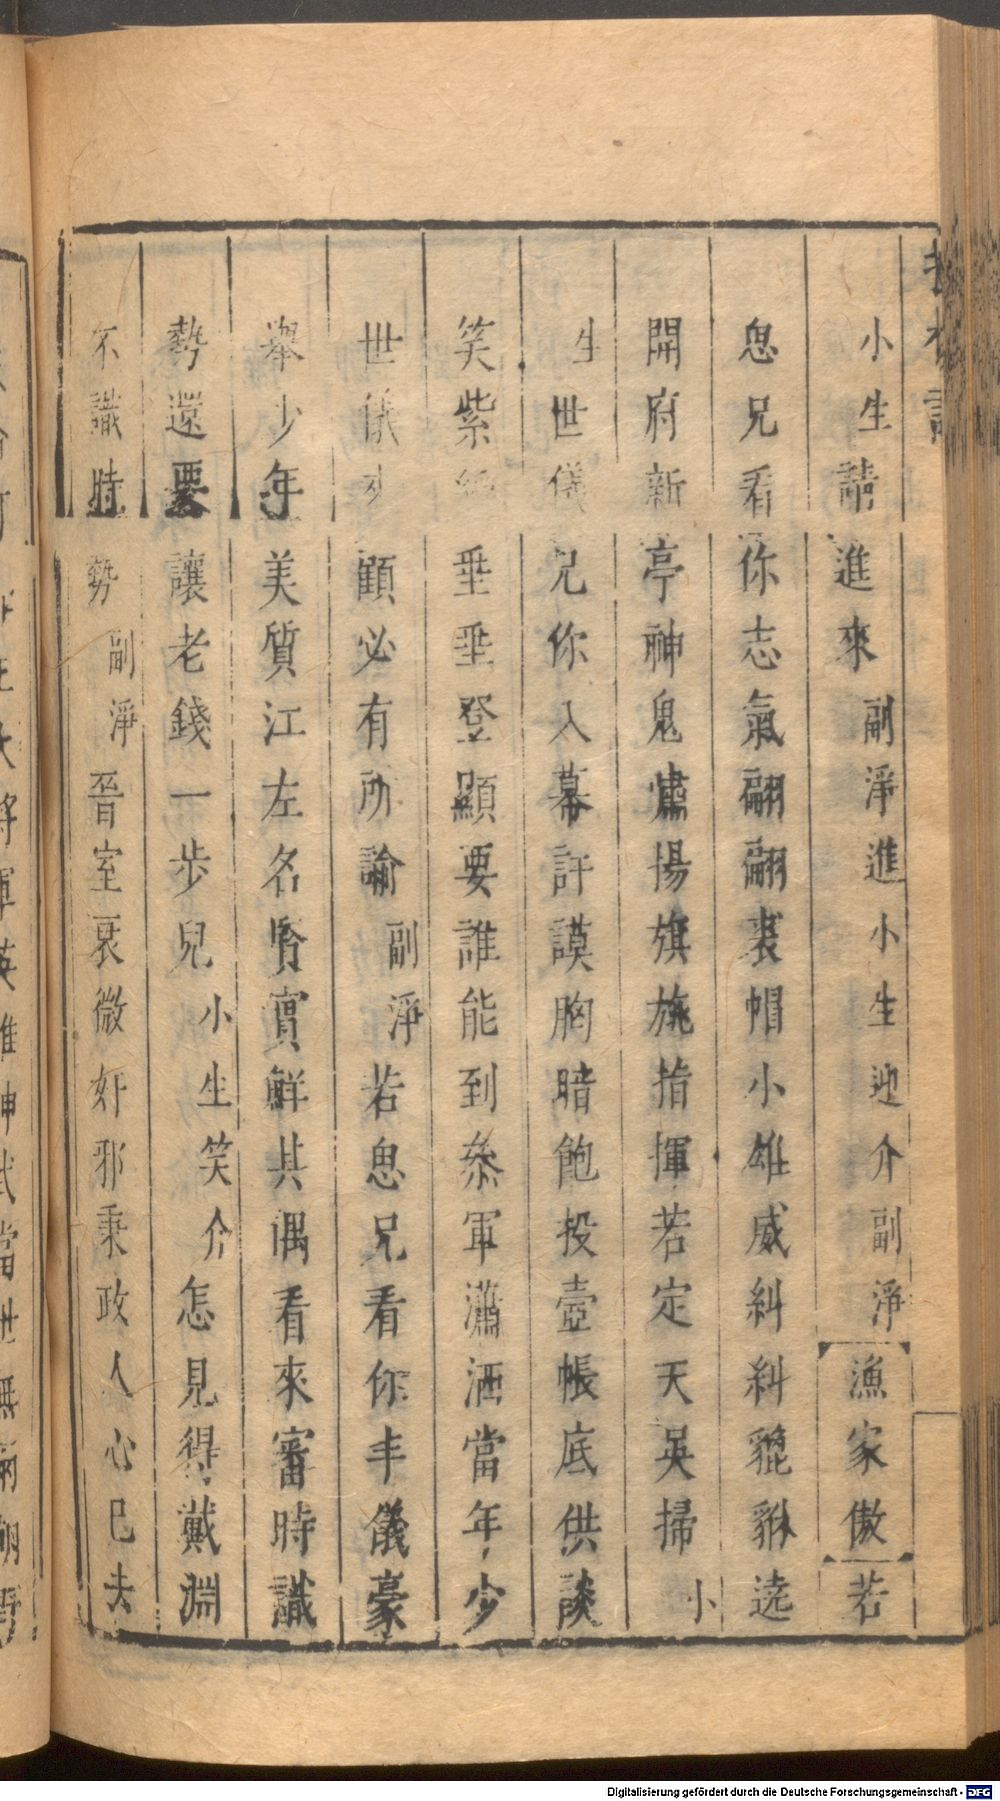 小生請進來副淨進小生迎介副淨漁家傲若
思兄看你志氣翩翩裘帽小雄威糾糾貔貅遶
開府新亭神鬼嘯揚旗旄指揮若定天吳掃小
生世儀兄你入幕訏謨胸暗飽投壺帳底供談
笑紫綬垂垂登顯要誰能到叅軍瀟洒當年少
世儀才顧必有所諭副淨若思兄看你丰儀豪
舉少年美質江左名賢實鮮其偶看來審時識
勢還要讓老錢一步兒小生笑介怎見得戴淵
不識時勢副淨晉室衰微奸邪秉政人心已去
Digitalisierung gefördert durch die Deutsche Forschungsgemeinschaft - DFG